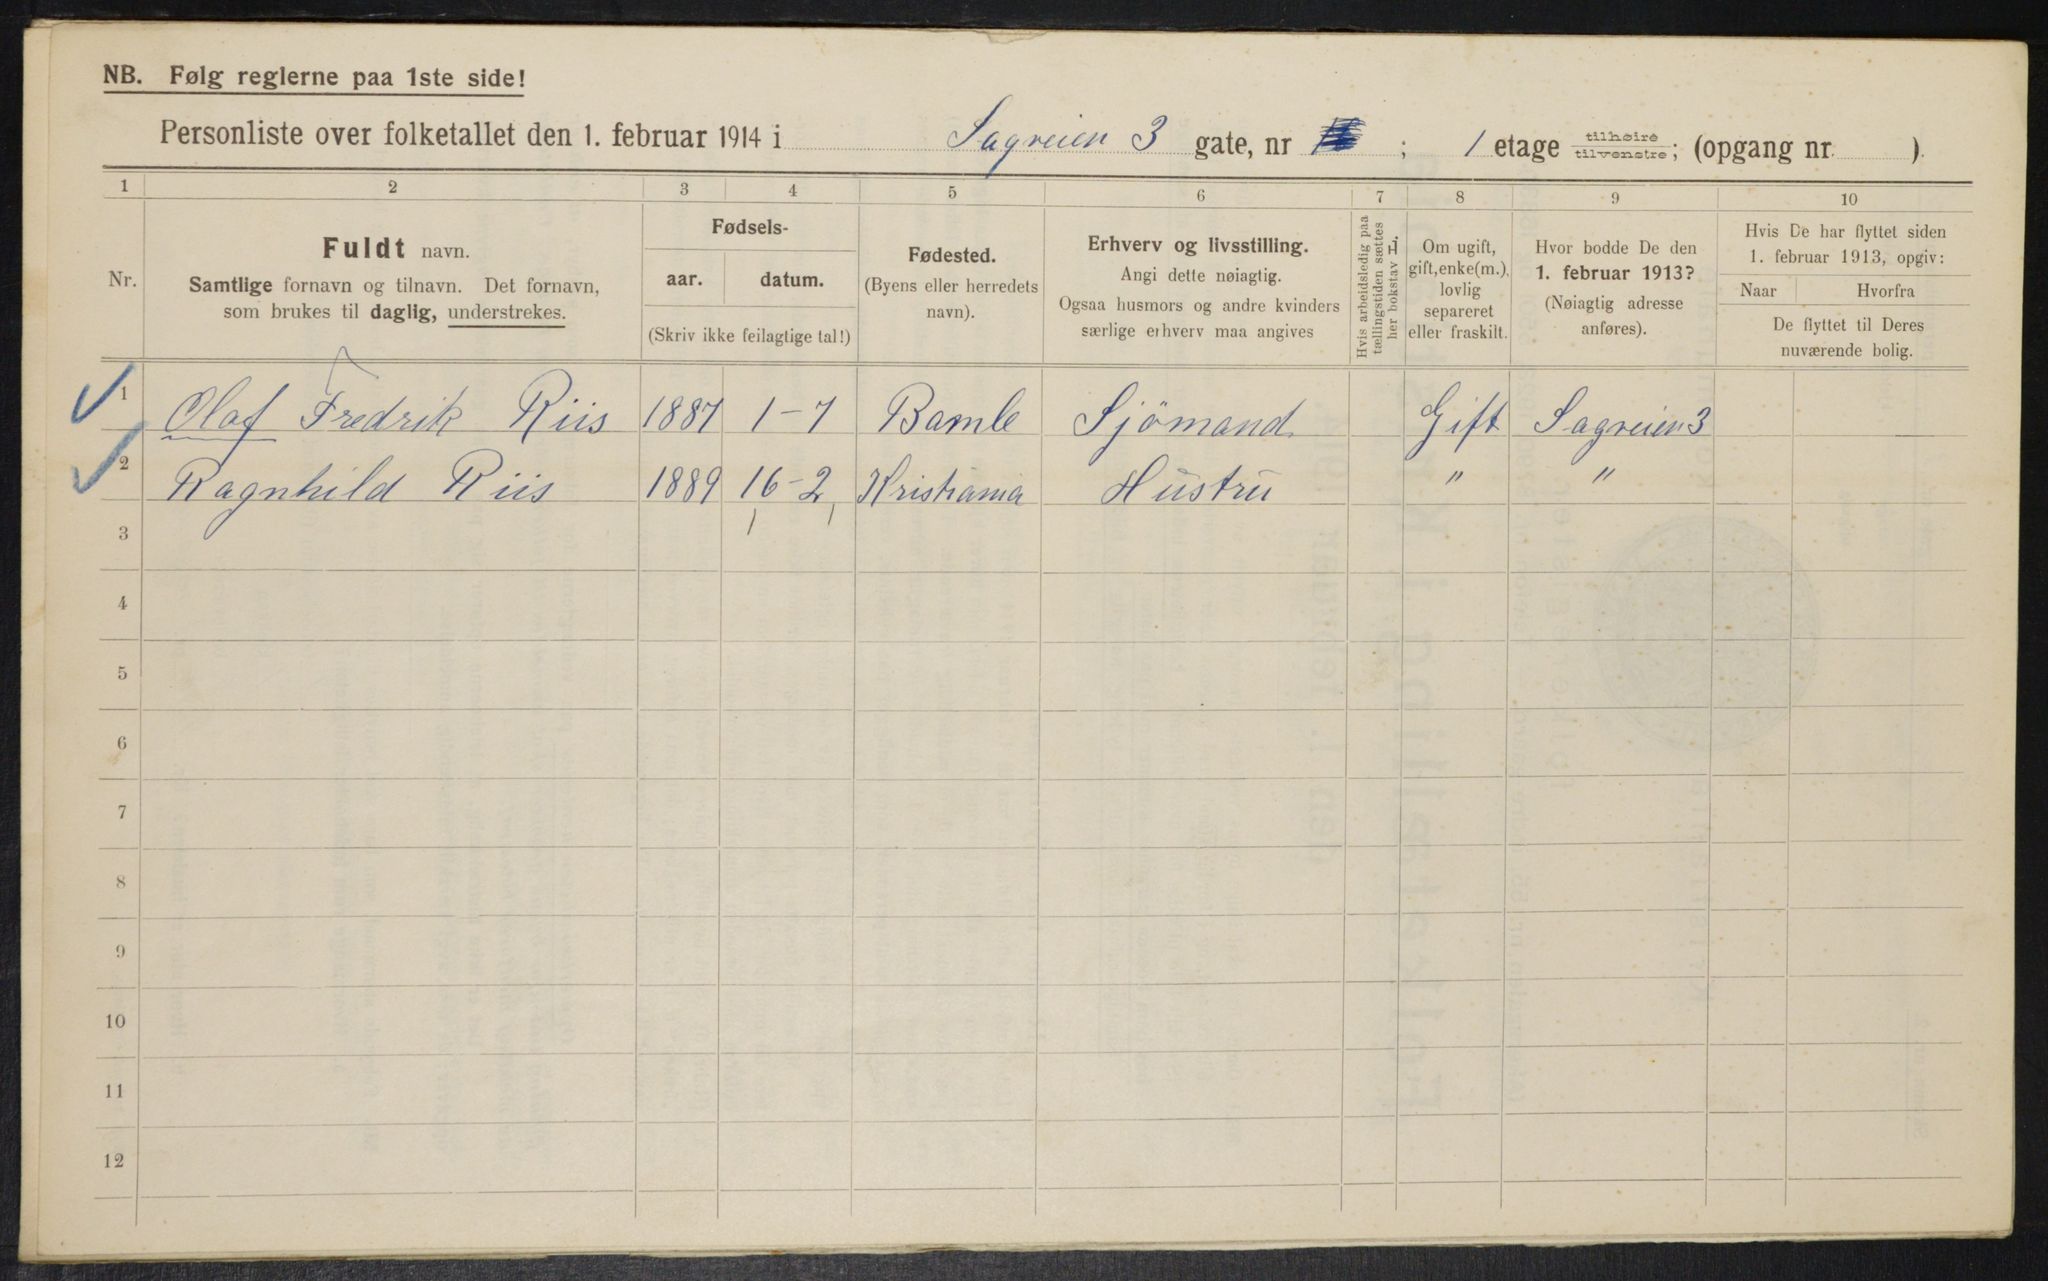 NB. Følg reglerne paa 1ste side!
Personliste over folketallet den 1. februar 1914 i Sagveien 3 gate, nr ; 1 etage tilhøire tilvenstre; (opgang nr. ).
1 2 3 4 5 6 7 8 9 10
Nr.
Fuldt navn.
Samtlige fornavn og tilnavn. Det fornavn,
som brukes til daglig, understrekes.
Fødsels-
aar. datum.
(Skriv ikke feilagtige tal!)
Fødested.
(Byens eller herredets
navn).
Erhverv og livsstilling.
Angi dette nøiagtig.
Ogsaa husmors og andre kvinders
særlige erhverv maa angives
Hvis arbeidsledig paa
tællingstiden sættes
her bokstav H.
Om ugift,
gift, enke(m.),
lovlig
separeret
eller fraskilt.
Hvor bodde De den
1. februar 1913?
(Nøiagtig adresse
anføres).
Hvis De har flyttet siden
1. februar 1913, opgiv:
Naar Hvorfra
De flyttet til Deres
nuværende bolig.
1 Olaf Fredrik Riis 1887 1-7 Bamle Sjömand Gift Sagveien 3
2 Ragnhild Riis 1889 16-2 Kristiania Hustru " "
3
4
5
6
7
8
9
10
11
12